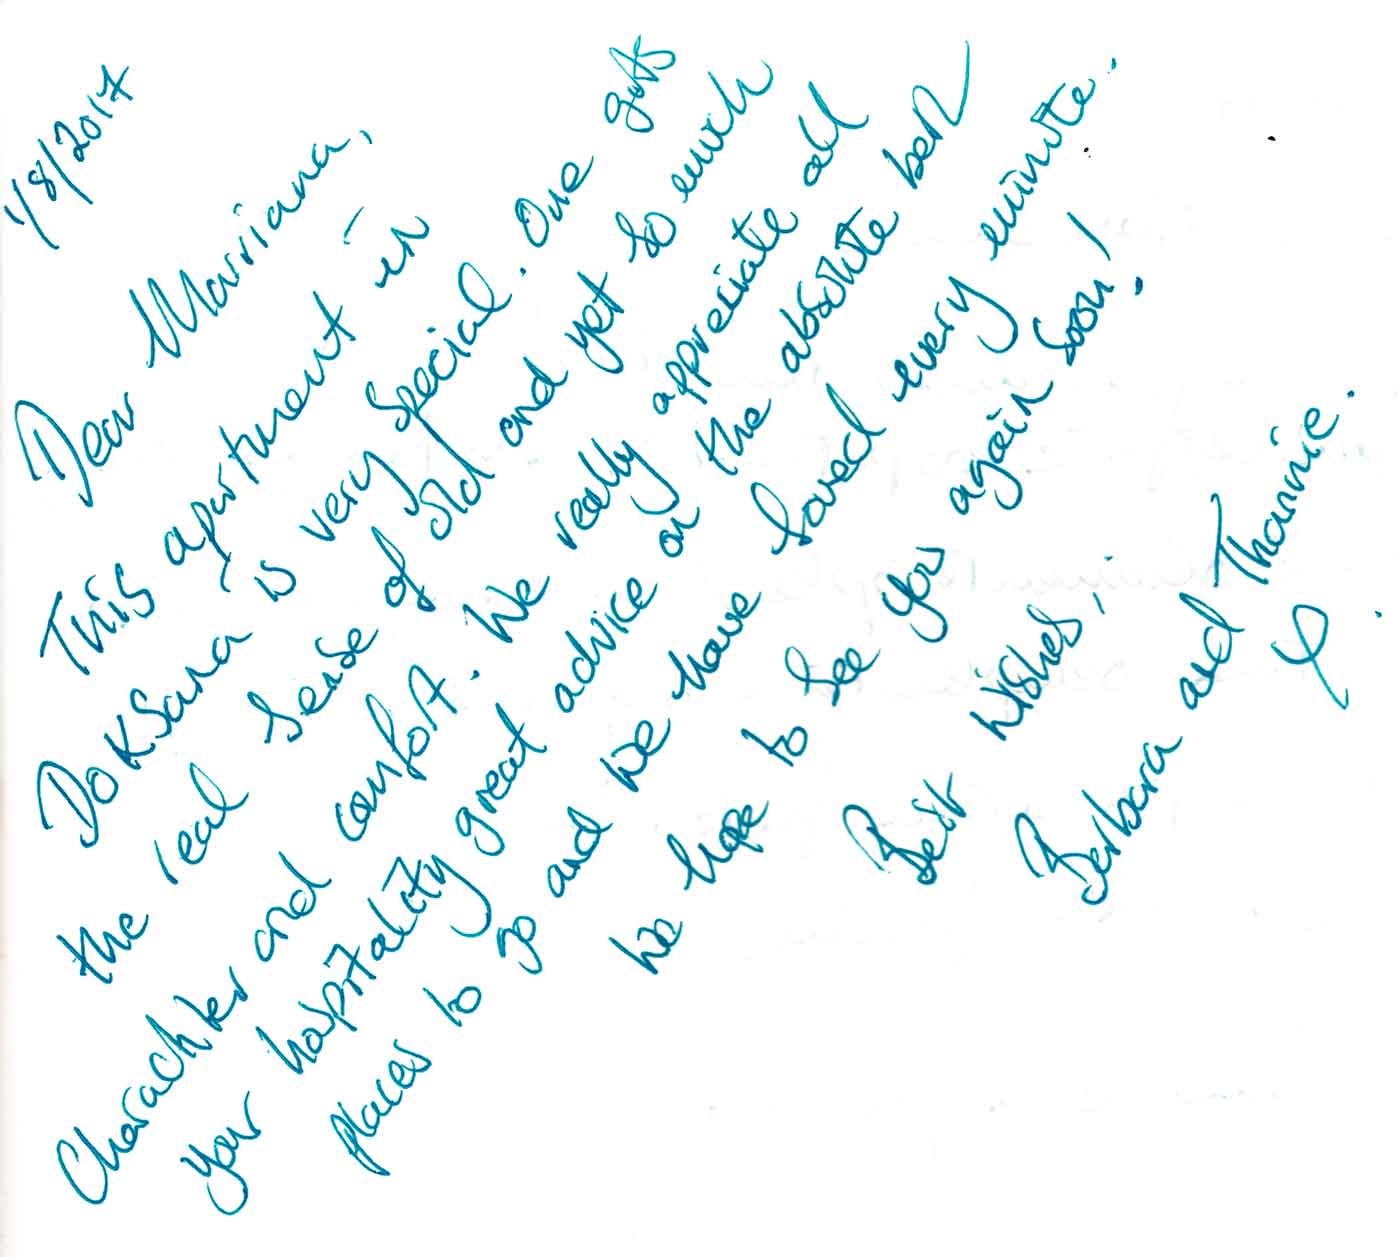 1/8/2017
Dear Marriana,
This apartment in
DOKSana is very special. One gets
the real sense of old and yet so much
Charachter and comfort. We really appreciate all
your hospitality great advice on the absolute best
places to go and we have loved every minute.
We hope to see you again soon!
Best wishes,
Barbara and Thannie.